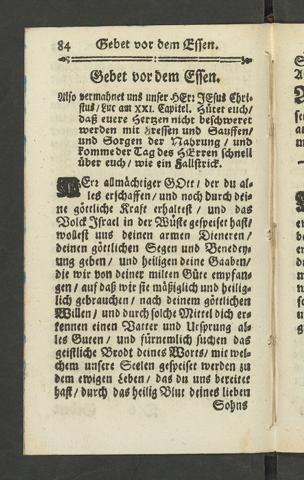 84 Gebet vor dem Essen.
Gebet vor dem Essen.
Also vermahnet uns unser HErr JEsus Chri-
stus/ Luc am XXI. Capitel. Hütet euch/
daß euere Hertzen nicht beschweret
werden mit Fressen und Sauffen/
und Sorgen der Nahrung / und
komme der Tag des HErren schnell
über euch / wie ein Fallstrick.
HErr allmächtiger GOtt / der du al-
les erschaffen / und noch durch dei-
ne göttliche Kraft erhaltest / und das
Volck Israel in der Wüste gespeiset hast/
wollest uns deinen armen Dieneren /
deinen göttlichen Segen und Benedey-
ung geben / und heiligen deine Gaaben/
die wir von deiner milten Güte empfan-
gen / auf daß wir sie mäßiglich und heilig-
lich gebrauchen / nach deinem göttlichen
Willen / und durch solche Mittel dich er-
kennen einen Vatter und Ursprung al-
les Guten / und fürnemlich suchen das
geistliche Brodt deines Worts / mit wel-
chem unsere Seelen gespeiset werden zu
dem ewigen Leben / das du uns bereitet
hast / durch das heilig Blut deines lieben
Sohns